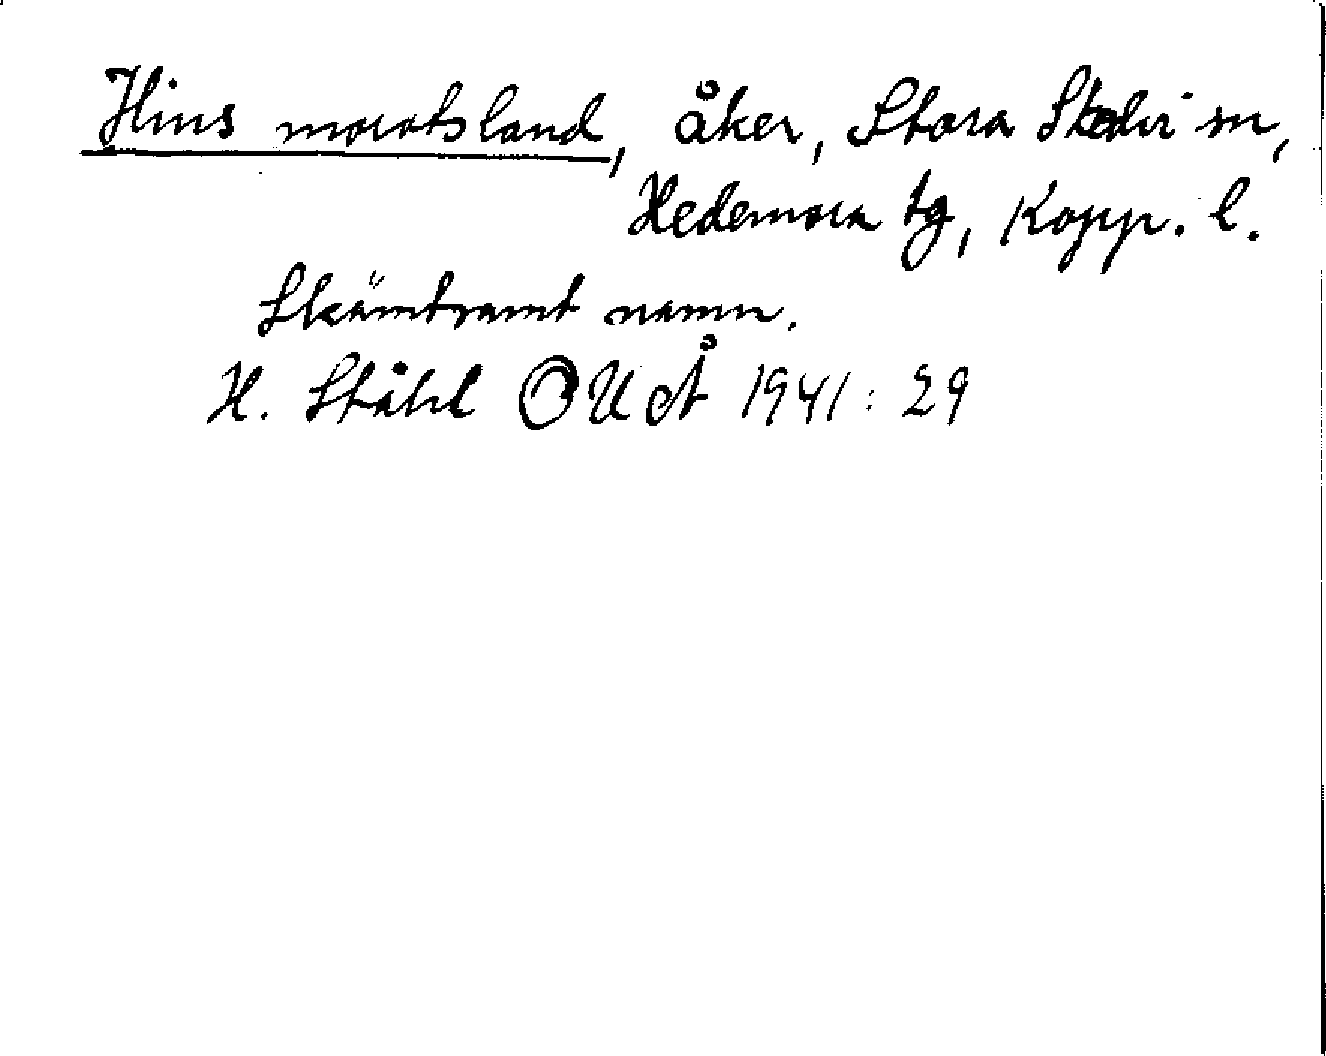 Hins morotsland, åker, Stora Skedvi sn,
Hedemora tg, Kopp. l.
Skämtsamt namn.
H. Ståhl OUÅ 1941: 29